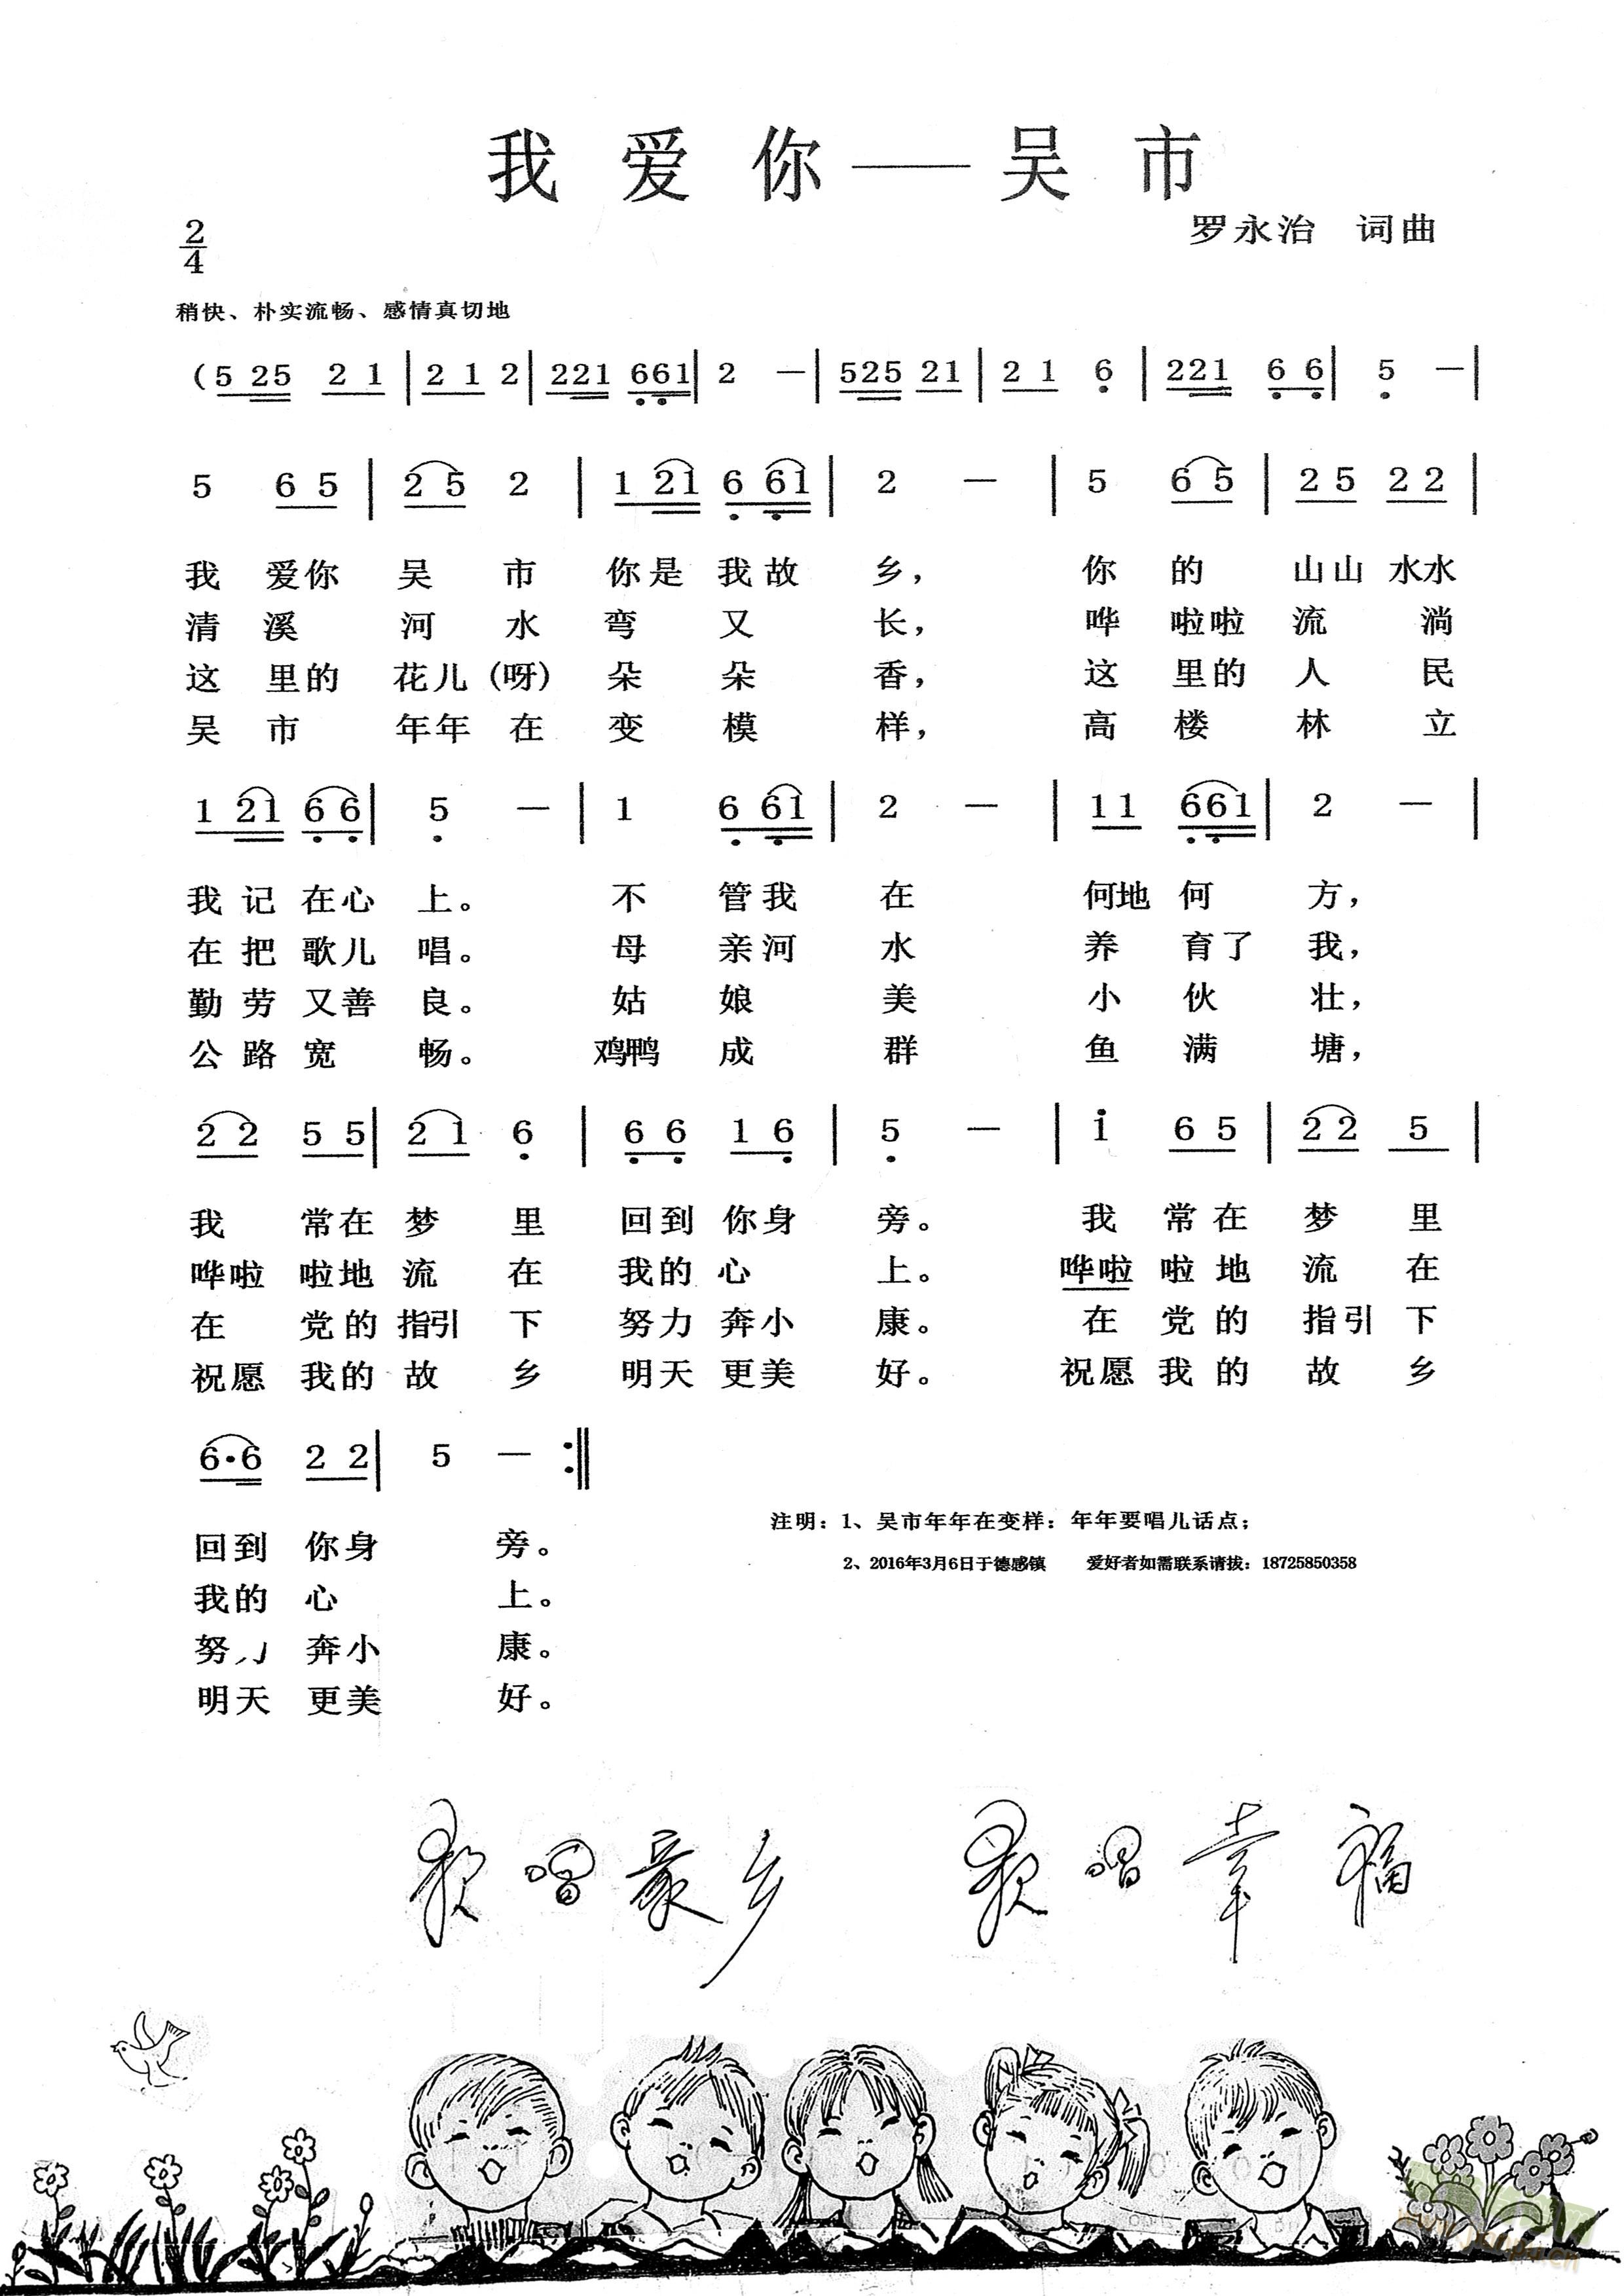 我爱你——吴市
2/4
罗永治 词曲
稍快、朴实流畅、感情真切地
(5 25 2 1 | 2 1 2 | 221 661 | 2 — | 525 21 | 2 1 6 | 221 6 6 | 5 — |
5 6 5 | 2 5 2 | 1 21 6 61 | 2 — | 5 6 5 | 2 5 2 2 |
我 爱你 吴 市 你是 我故 乡， 你 的 山山 水水
清 溪 河 水 弯 又 长， 哗 啦啦 流 淌
这 里的 花儿(呀) 朵 朵 香， 这 里的 人 民
吴 市 年年 在 变 模 样， 高 楼 林 立
1 21 6 6 | 5 — | 1 6 61 | 2 — | 11 661 | 2 — |
我 记 在心 上。 不 管我 在 何地 何 方，
在 把 歌儿 唱。 母 亲河 水 养 育了 我，
勤 劳 又善 良。 姑 娘 美 小 伙 壮，
公 路 宽 畅。 鸡鸭 成 群 鱼 满 塘，
2 2 5 5 | 2 1 6 | 6 6 1 6 | 5 — | i 6 5 | 2 2 5 |
我 常在 梦 里 回到 你身 旁。 我 常 在 梦 里
哗啦 啦地 流 在 我的 心 上。 哗啦 啦 地 流 在
在 党的 指引 下 努力 奔小 康。 在 党 的 指引 下
祝愿 我的 故 乡 明天 更美 好。 祝愿 我 的 故 乡
6·6 2 2 | 5 — :||
回到 你身 旁。
我的 心 上。
努力 奔小 康。
明天 更美 好。
注明：1、吴市年年在变样：年年要唱儿话点；
2、2016年3月6日于德感镇 爱好者如需联系请拔：18725850358
歌唱家乡 歌唱幸福